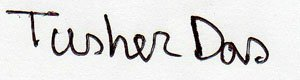 Tusher Das